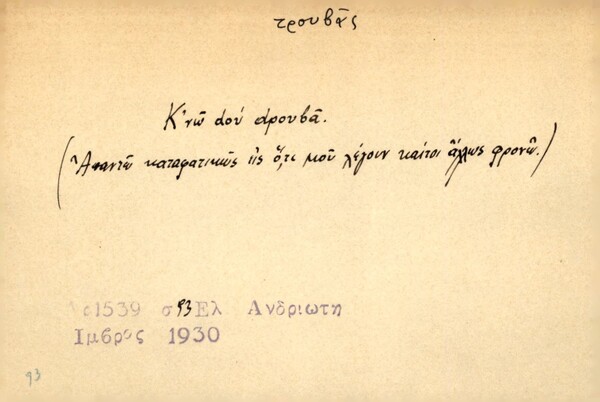 τρουβᾶς
Κ'νῶ dοὐ dρουβᾶ.
(Ἀπαντῶ καταφατικῶς εἰς ὅ,τι μοῦ λέγουν καίτοι ἄλλως φρονῶ.)
1539 σ 93 Ελ Ανδριωτη
Ιμβρος 1930
93